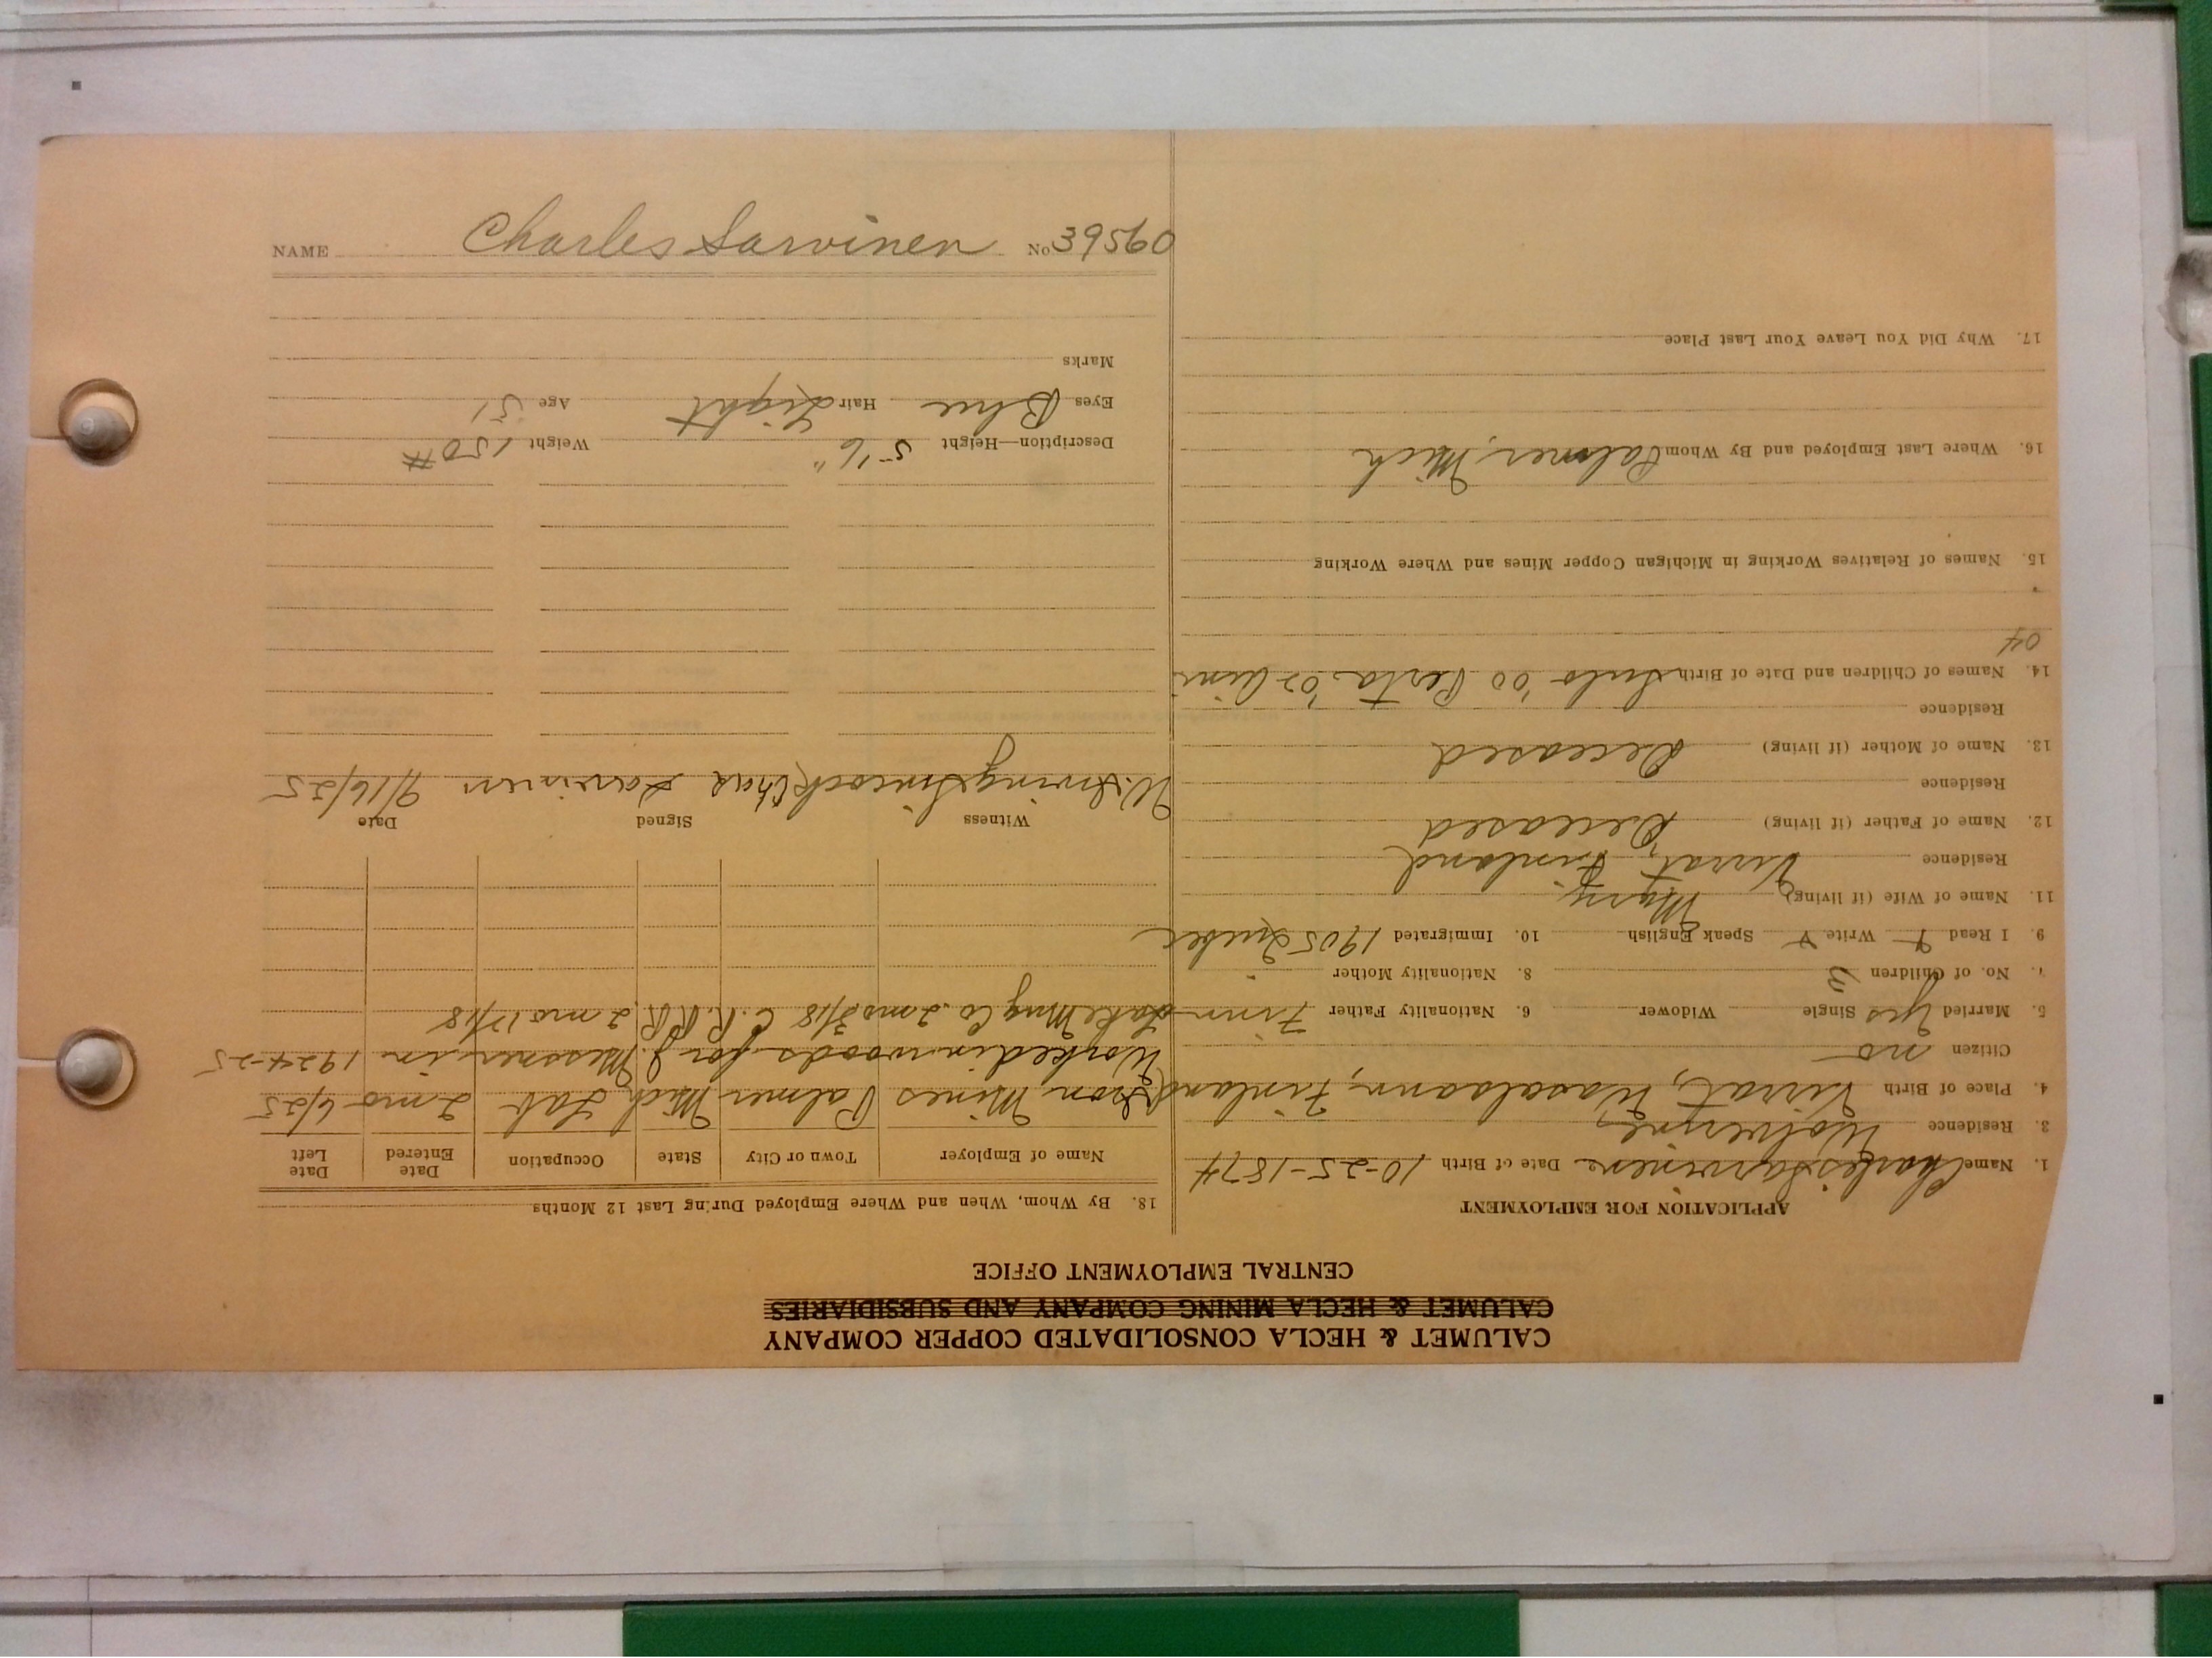 CALUMET & HECLA CONSOLIDATED COPPER COMPANY
CALUMET & HECLA MINING COMPANY AND SUBSIDIARIES
CENTRAL EMPLOYMENT OFFICE
APPLICATION FOR EMPLOYMENT
1. Name Charles Sarvinen Date of Birth 10-25-1874
3. Residence Wolverine
4. Place of Birth Virrat, Waasalaann, Finland
Citizen no
5. Married yes Single Widower 6. Nationality Father Finn
7. No. of Children 3 8. Nationality Mother "
9. I Read Write Speak English 10. Immigrated 1905 Quebec
11. Name of Wife (if living) Mary
Residence Virrat, Finland
12. Name of Father (if living) Deceased
Residence
13. Name of Mother (if living) Deceased
Residence
14. Names of Children and Date of Birth Sulo '00 Perta '02 Aini
04
15. Names of Relatives Working in Michigan Copper Mines and Where Working
16. Where Last Employed and By Whom Palmer, Mich
17. Why Did You Leave Your Last Place
18. By Whom, When and Where Employed During Last 12 Months
Name of Employer Town or City State Occupation Date Entered Date Left
Iron Mines Palmer Mich Lab 2 mo 6/25
Worked in woods for J. Messner in 1924-25
Lake Mng Co. 2 mos 3/18 C. R. RR. 2 mo 12/18
Witness Signed Date
W. Irving Simcock Chas Sarvinen 9/16/25
Description—Height 5'6" Weight 150#
Eyes Blue Hair Light Age 51
Marks
NAME Charles Sarvinen No 39560